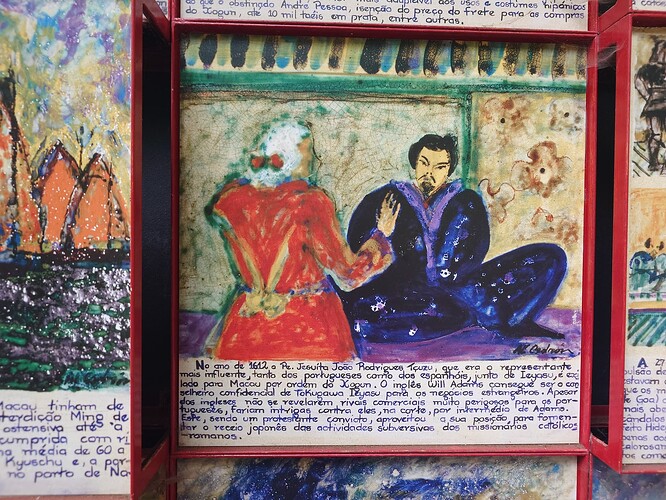 do que o obstinado André Pessoa, isenção do preço do frete para as compras
do Xogun, até 10 mil taéis em prata, entre outras.
No ano de 1612 o Pe. Jesuíta João Rodrigues Tçuzu, que era o representante
mais influente, tanto dos portugueses como dos espanhóis, junto de Ieyasu, é exi
lado para Macau por ordem do Xogun. O inglês Will Adams consegue ser o con
selheiro confidencial de Tokugawa Ieyasu para os negócios estrangeiros. Apesar
dos ingleses não se revelarem rivais comerciais muito perigosos para os por-
tugueses, fariam intrigas contra eles, na corte, por intermédio de Adams.
Este, sendo um protestante convicto, aproveitou a sua posição, para fomen-
tar o receio japonês das actividades subversivas dos missionários católicos
-romanos.
Macau tinham de
terdição Ming de
ostensiva até a
cumprida com ri
na média de 60 a
Kyuschu e, a par
no porto de Na
A 27